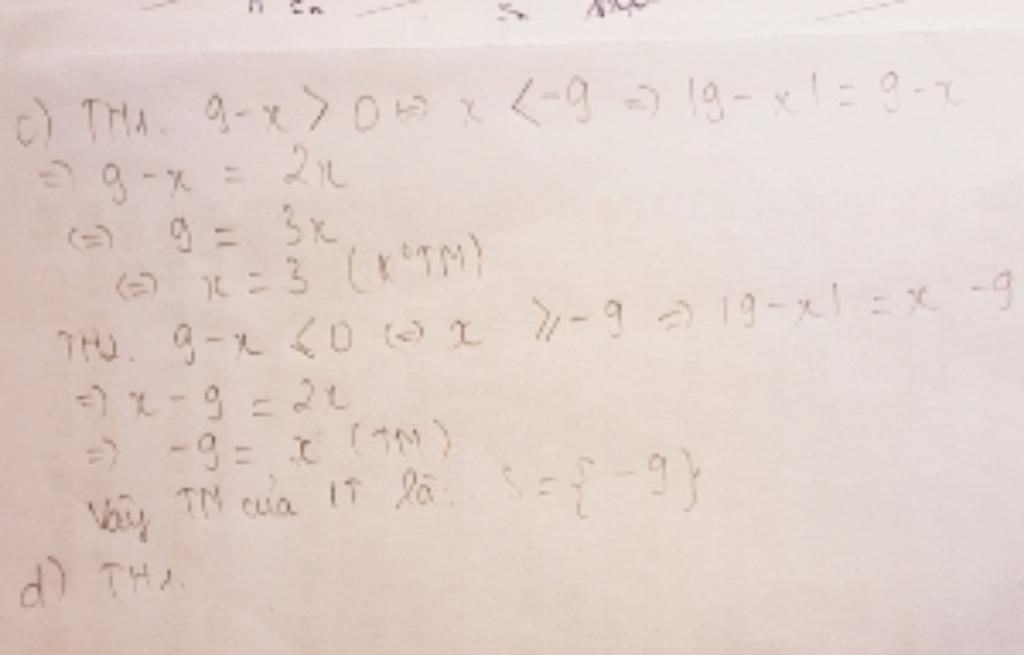 c) TH1. 9-x > 0 <=> x < -9 => |9-x| = 9-x
=> 9-x = 2x
<=> 9 = 3x
<=> x = 3 (K°TM)
TH2. 9-x ≤ 0 <=> x ≥ -9 => |9-x| = x - 9
=> x - 9 = 2x
=> -9 = x (TM)
Vậy TN của PT là: S = {-9}
d) TH1.